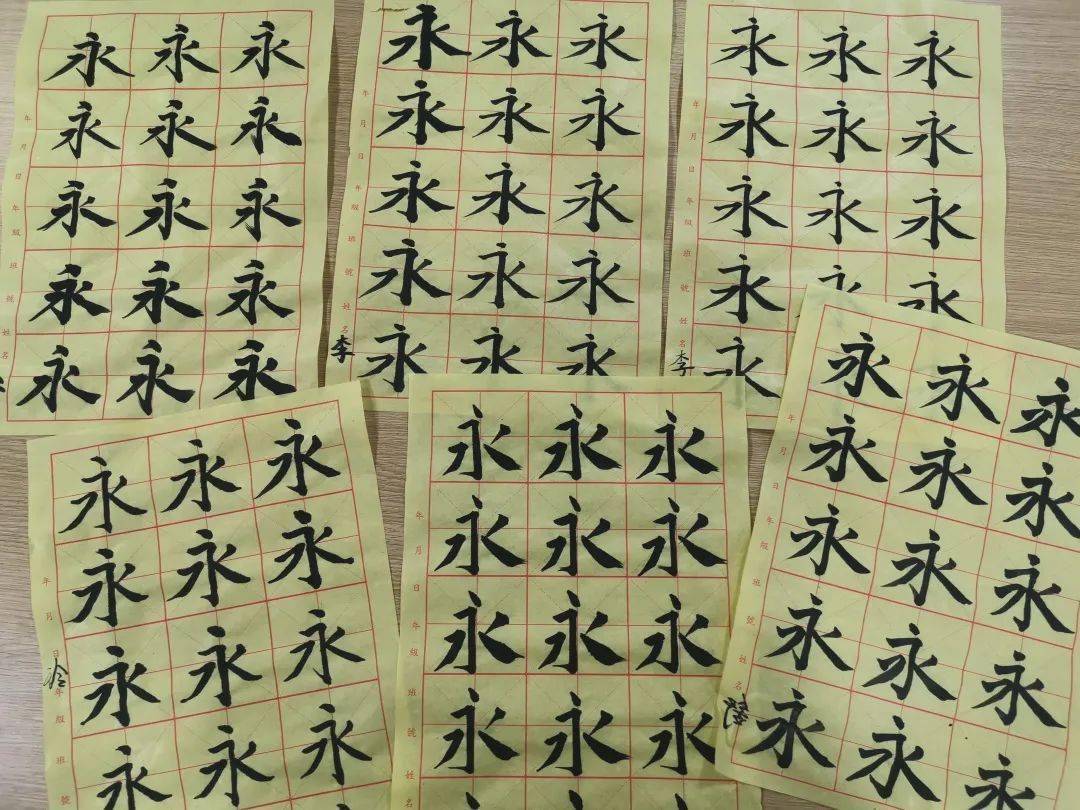 永永永
永永永
永永永
永永永
永永永
年月 年級班號姓名
永永永
永永永
永永永
永永永
永永永
年月日年級班號姓名李
永永永
永永永
永永永
永永永
永
年月日年級班號姓名李
永永永
永永永
永永永
永永永
年月日年級班號
永永永
永永永
永永永
永永永
年月日年級班號姓名
永永永
永永永
永永永
永永永
永永永
年月日年級班號姓名